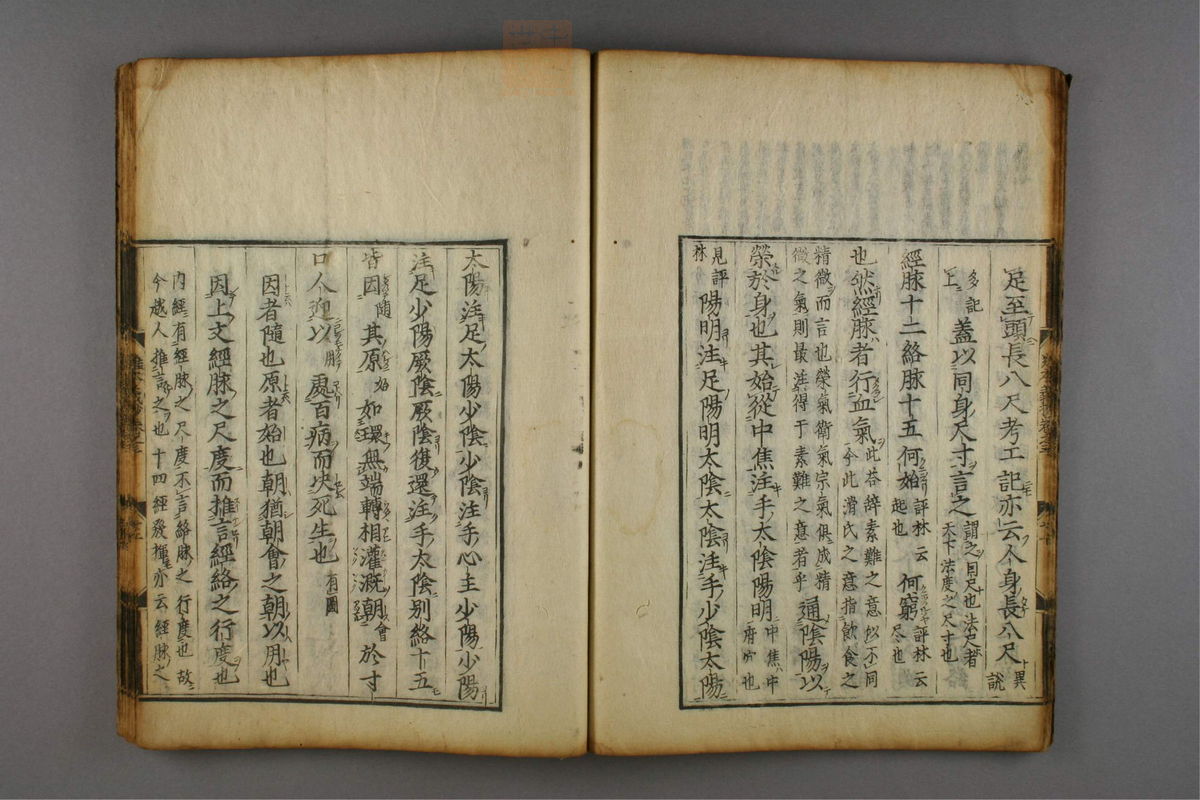 足至頭長八尺考工記亦云人身長八尺 異說
多記上 蓋以同身尺寸言之 謂之同尺也法尺者天下法度之尺寸也
經脉十二絡脉十五何始 評林云起也 何窮 評林云尽也
也然經脉者行血氣 此荅辞素難之意似不同今此滑氏之意指飲食之
精微而言也榮氣衛氣宗氣俱成精
微之氣則最注得于素難之意者乎 通陰陽以
榮於身也其始從中焦注手太陰陽明 中焦中府穴也
見評林 陽明注足陽明太陰太陰注手少陰太陽
太陽注足太陽少陰少陰注手心主少陽少陽
注足少陽厥陰厥陰復還注手太陰別絡十五
皆因 隨 其原 始 如環無端轉相灌漑朝 會 於寸
口人迎以 處百病而决死生也 有圖
因者隨也原者始也朝猶朝會之朝以用也
因上文經脉之尺度而推言經絡之行度也
内經有經脉之尺度不言絡脉之行度也故
今越人推言之也十四經發揮亦云經脉之